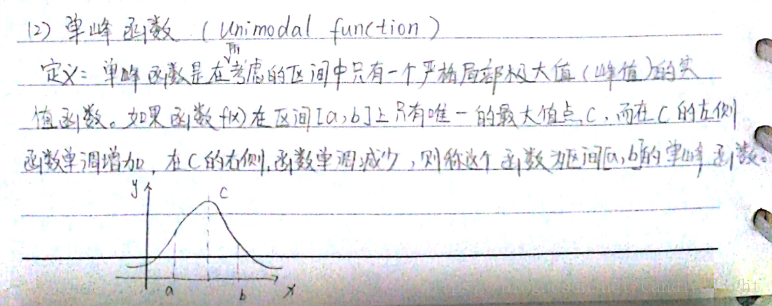 (2) 单峰函数 (Unimodal function)
定义: 单峰函数是在所考虑的区间中只有一个严格局部极大值(峰值)的实
值函数。如果函数f(x)在区间[a,b]上只有唯一的最大值点C,而在C的左侧
函数单调增加,在C的右侧,函数单调减少,则称这个函数为区间[a,b]的单峰函数。
y
C
a b x